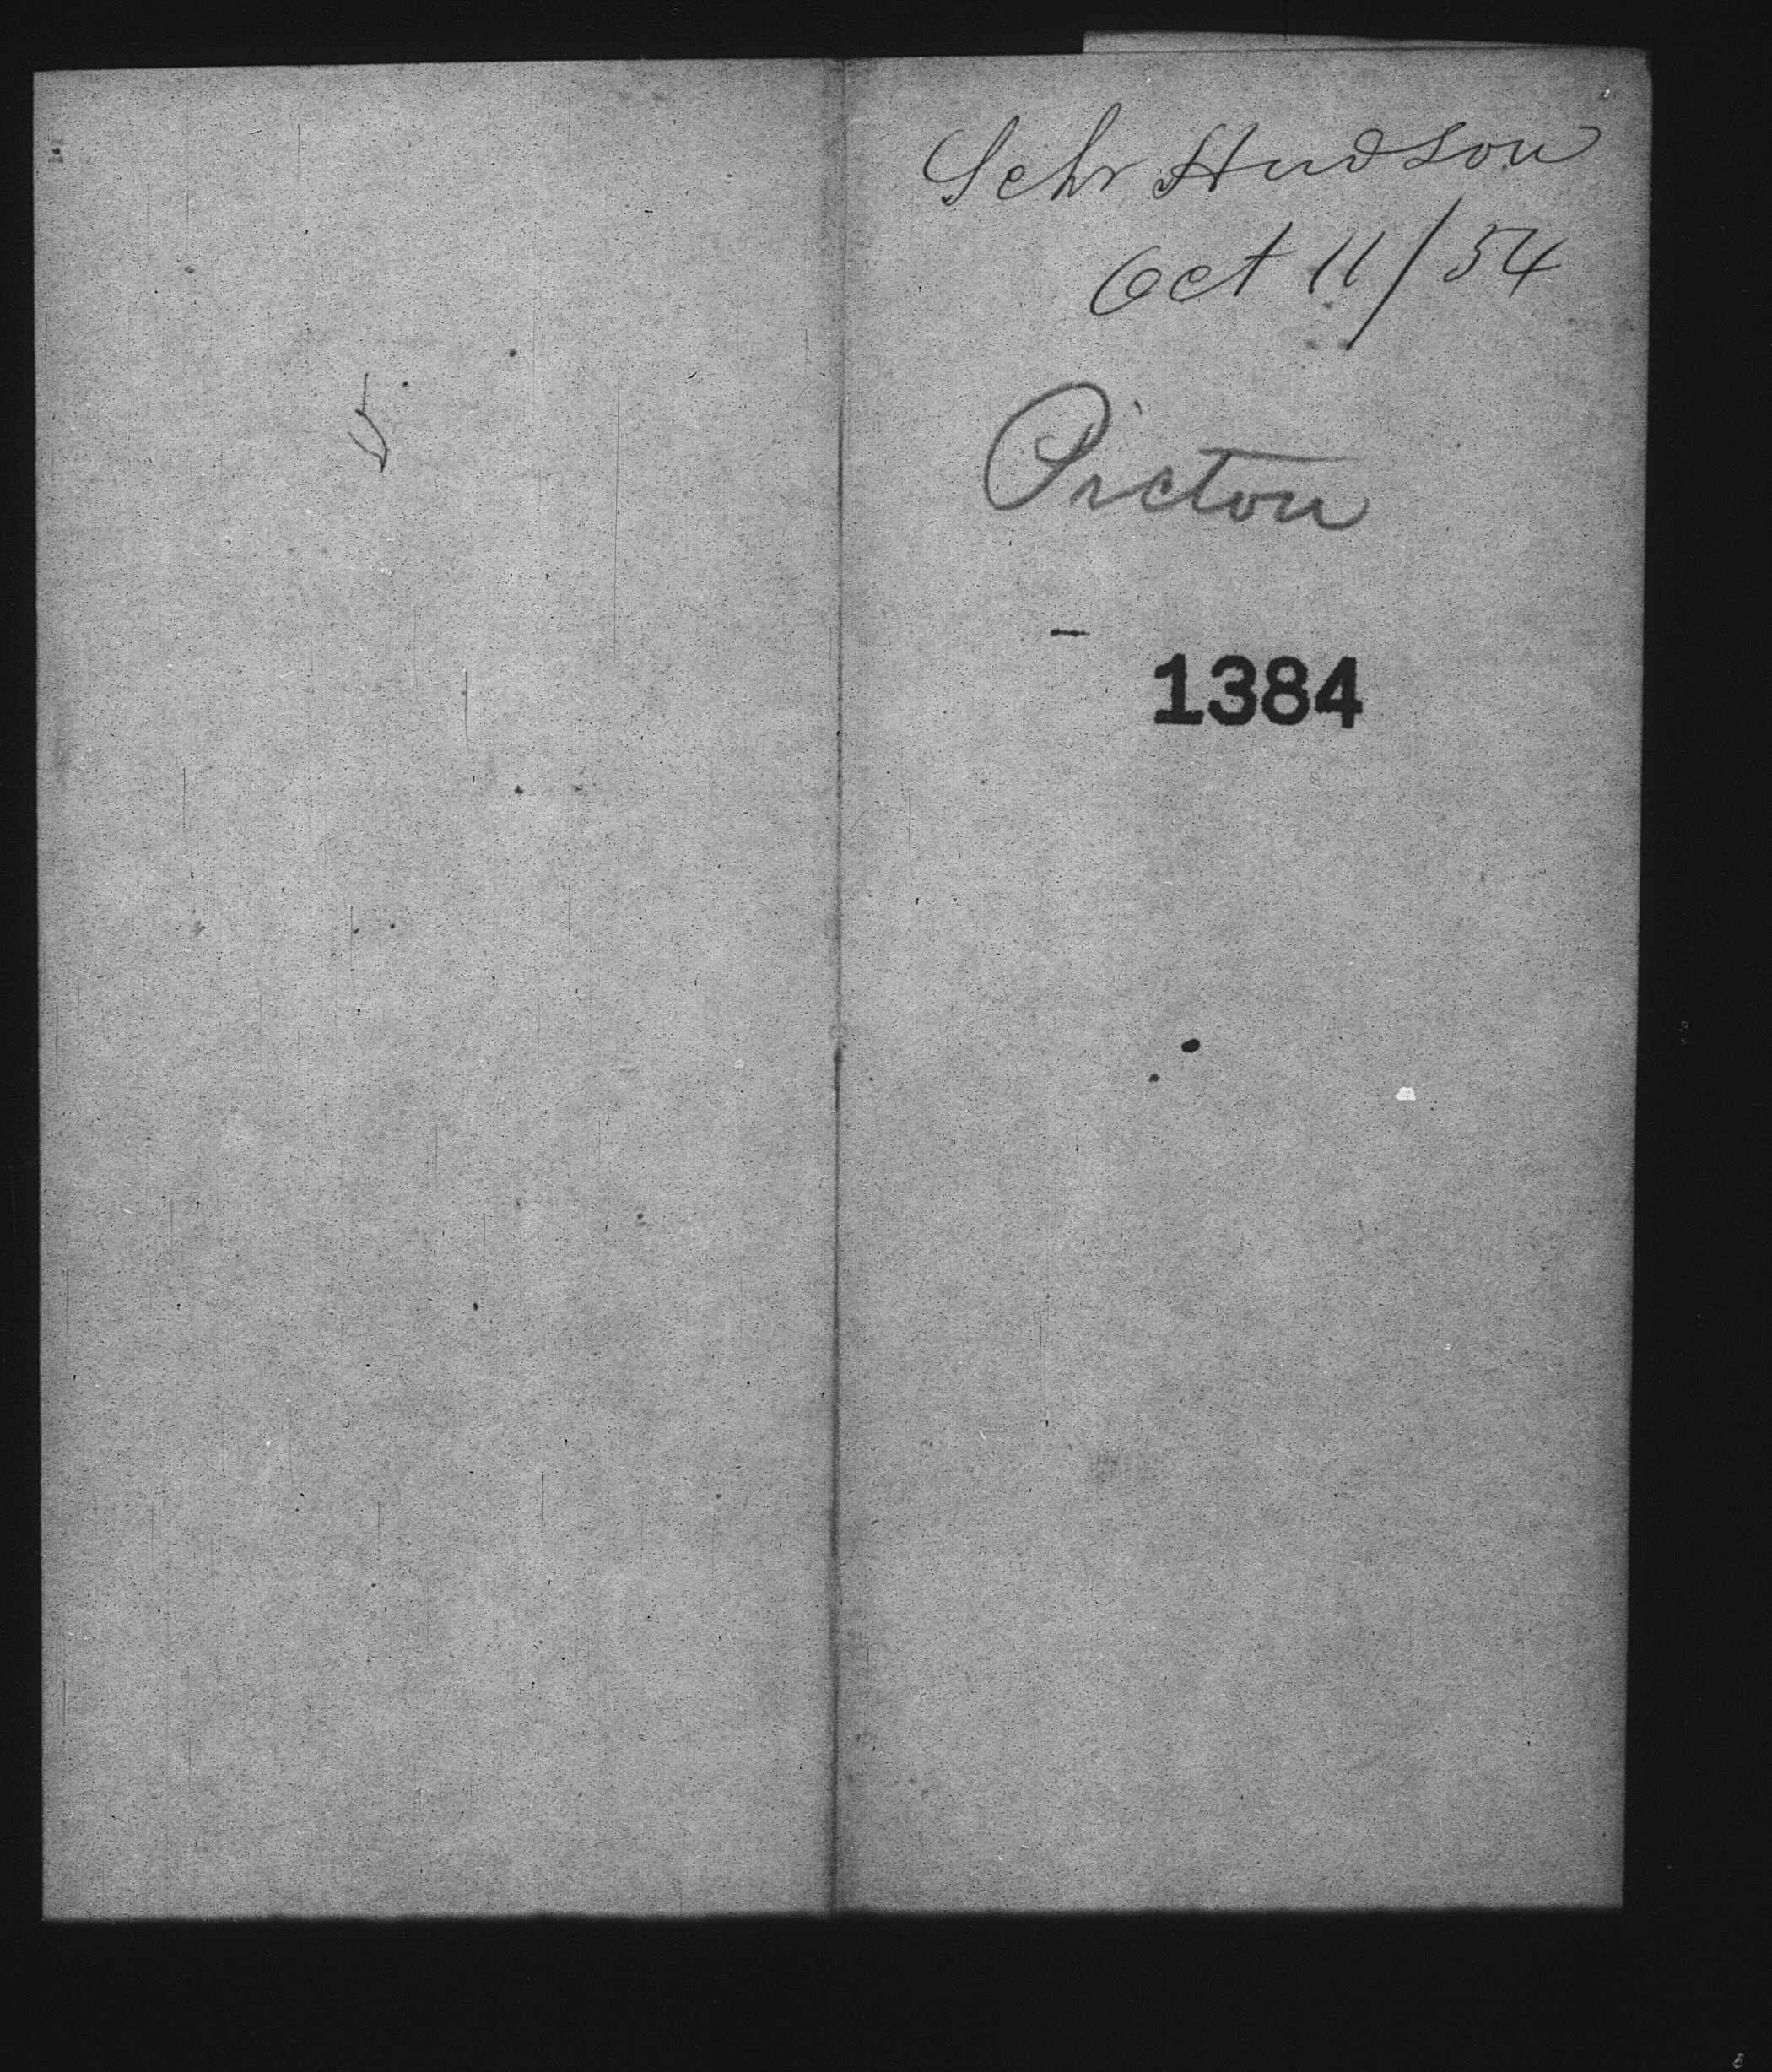 Schr Hudson
Oct 11/54
Pictou
1384